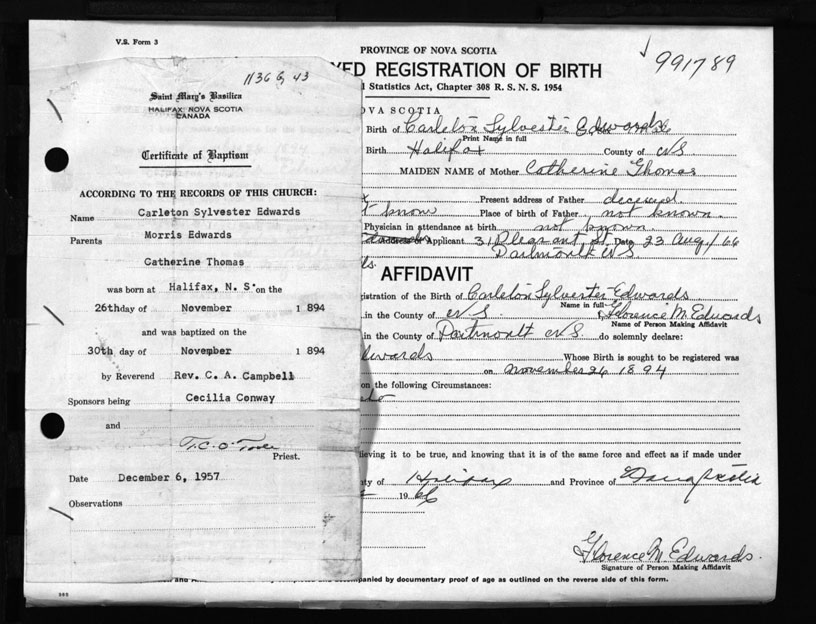 V.S. Form 3
PROVINCE OF NOVA SCOTIA
991789
YED REGISTRATION OF BIRTH
l Statistics Act, Chapter 308 R. S. N. S. 1954
OVA SCOTIA
Birth of Carleton Sylvester Edwards
Print Name in full
Birth Halifax County of NS
MAIDEN NAME of Mother Catherine Thomas
Present address of Father deceased.
t know Place of birth of Father not known.
Physician in attendance at birth not known.
Address of Applicant 31 Pleasant St. Date 23 Aug/66
Dartmouth NS
AFFIDAVIT
gistration of the Birth of Carleton Sylvester Edwards
Name in full
in the County of NS Florence M. Edwards
Name of Person Making Affidavit
in the County of Dartmouth NS. do solemnly declare:
Edwards Whose Birth is sought to be registered was
on November 26 1894
on the following Circumstances:
ieving it to be true, and knowing that it is of the same force and effect as if made under
ty of Halifax and Province of Nova Scotia
1966
Florence M. Edwards.
Signature of Person Making Affidavit
and A panied by documentary proof of age as outlined on the reverse side of this form.
1136 6, 43
Saint Mary's Basilica
HALIFAX, NOVA SCOTIA
CANADA
Certificate of Baptism
ACCORDING TO THE RECORDS OF THIS CHURCH:
Name Carleton Sylvester Edwards
Parents Morris Edwards
Catherine Thomas
was born at Halifax, N. S. on the
26th day of November 1894
and was baptized on the
30th day of November 1894
by Reverend Rev. C. A. Campbell
Sponsors being Cecilia Conway
and
Priest.
Date December 6, 1957
Observations